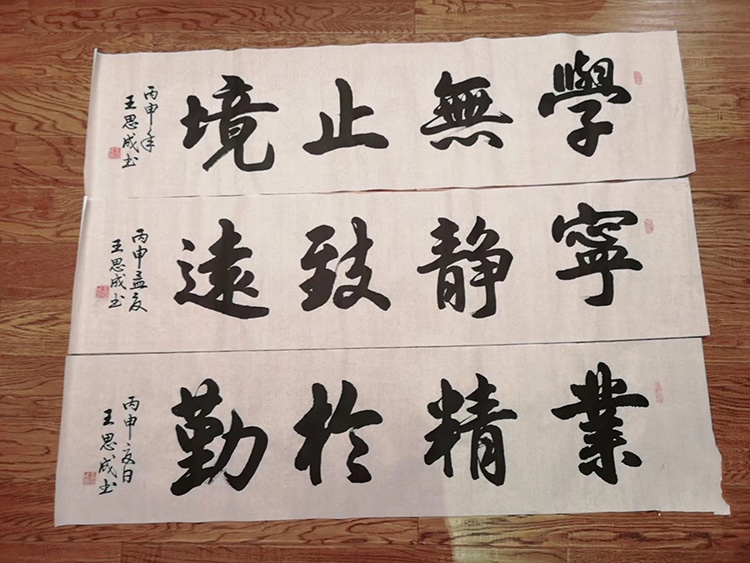 學無止境
丙申年
王思成书
寧静致遠
丙申孟夏
王思成书
業精於勤
丙申夏日
王思成书